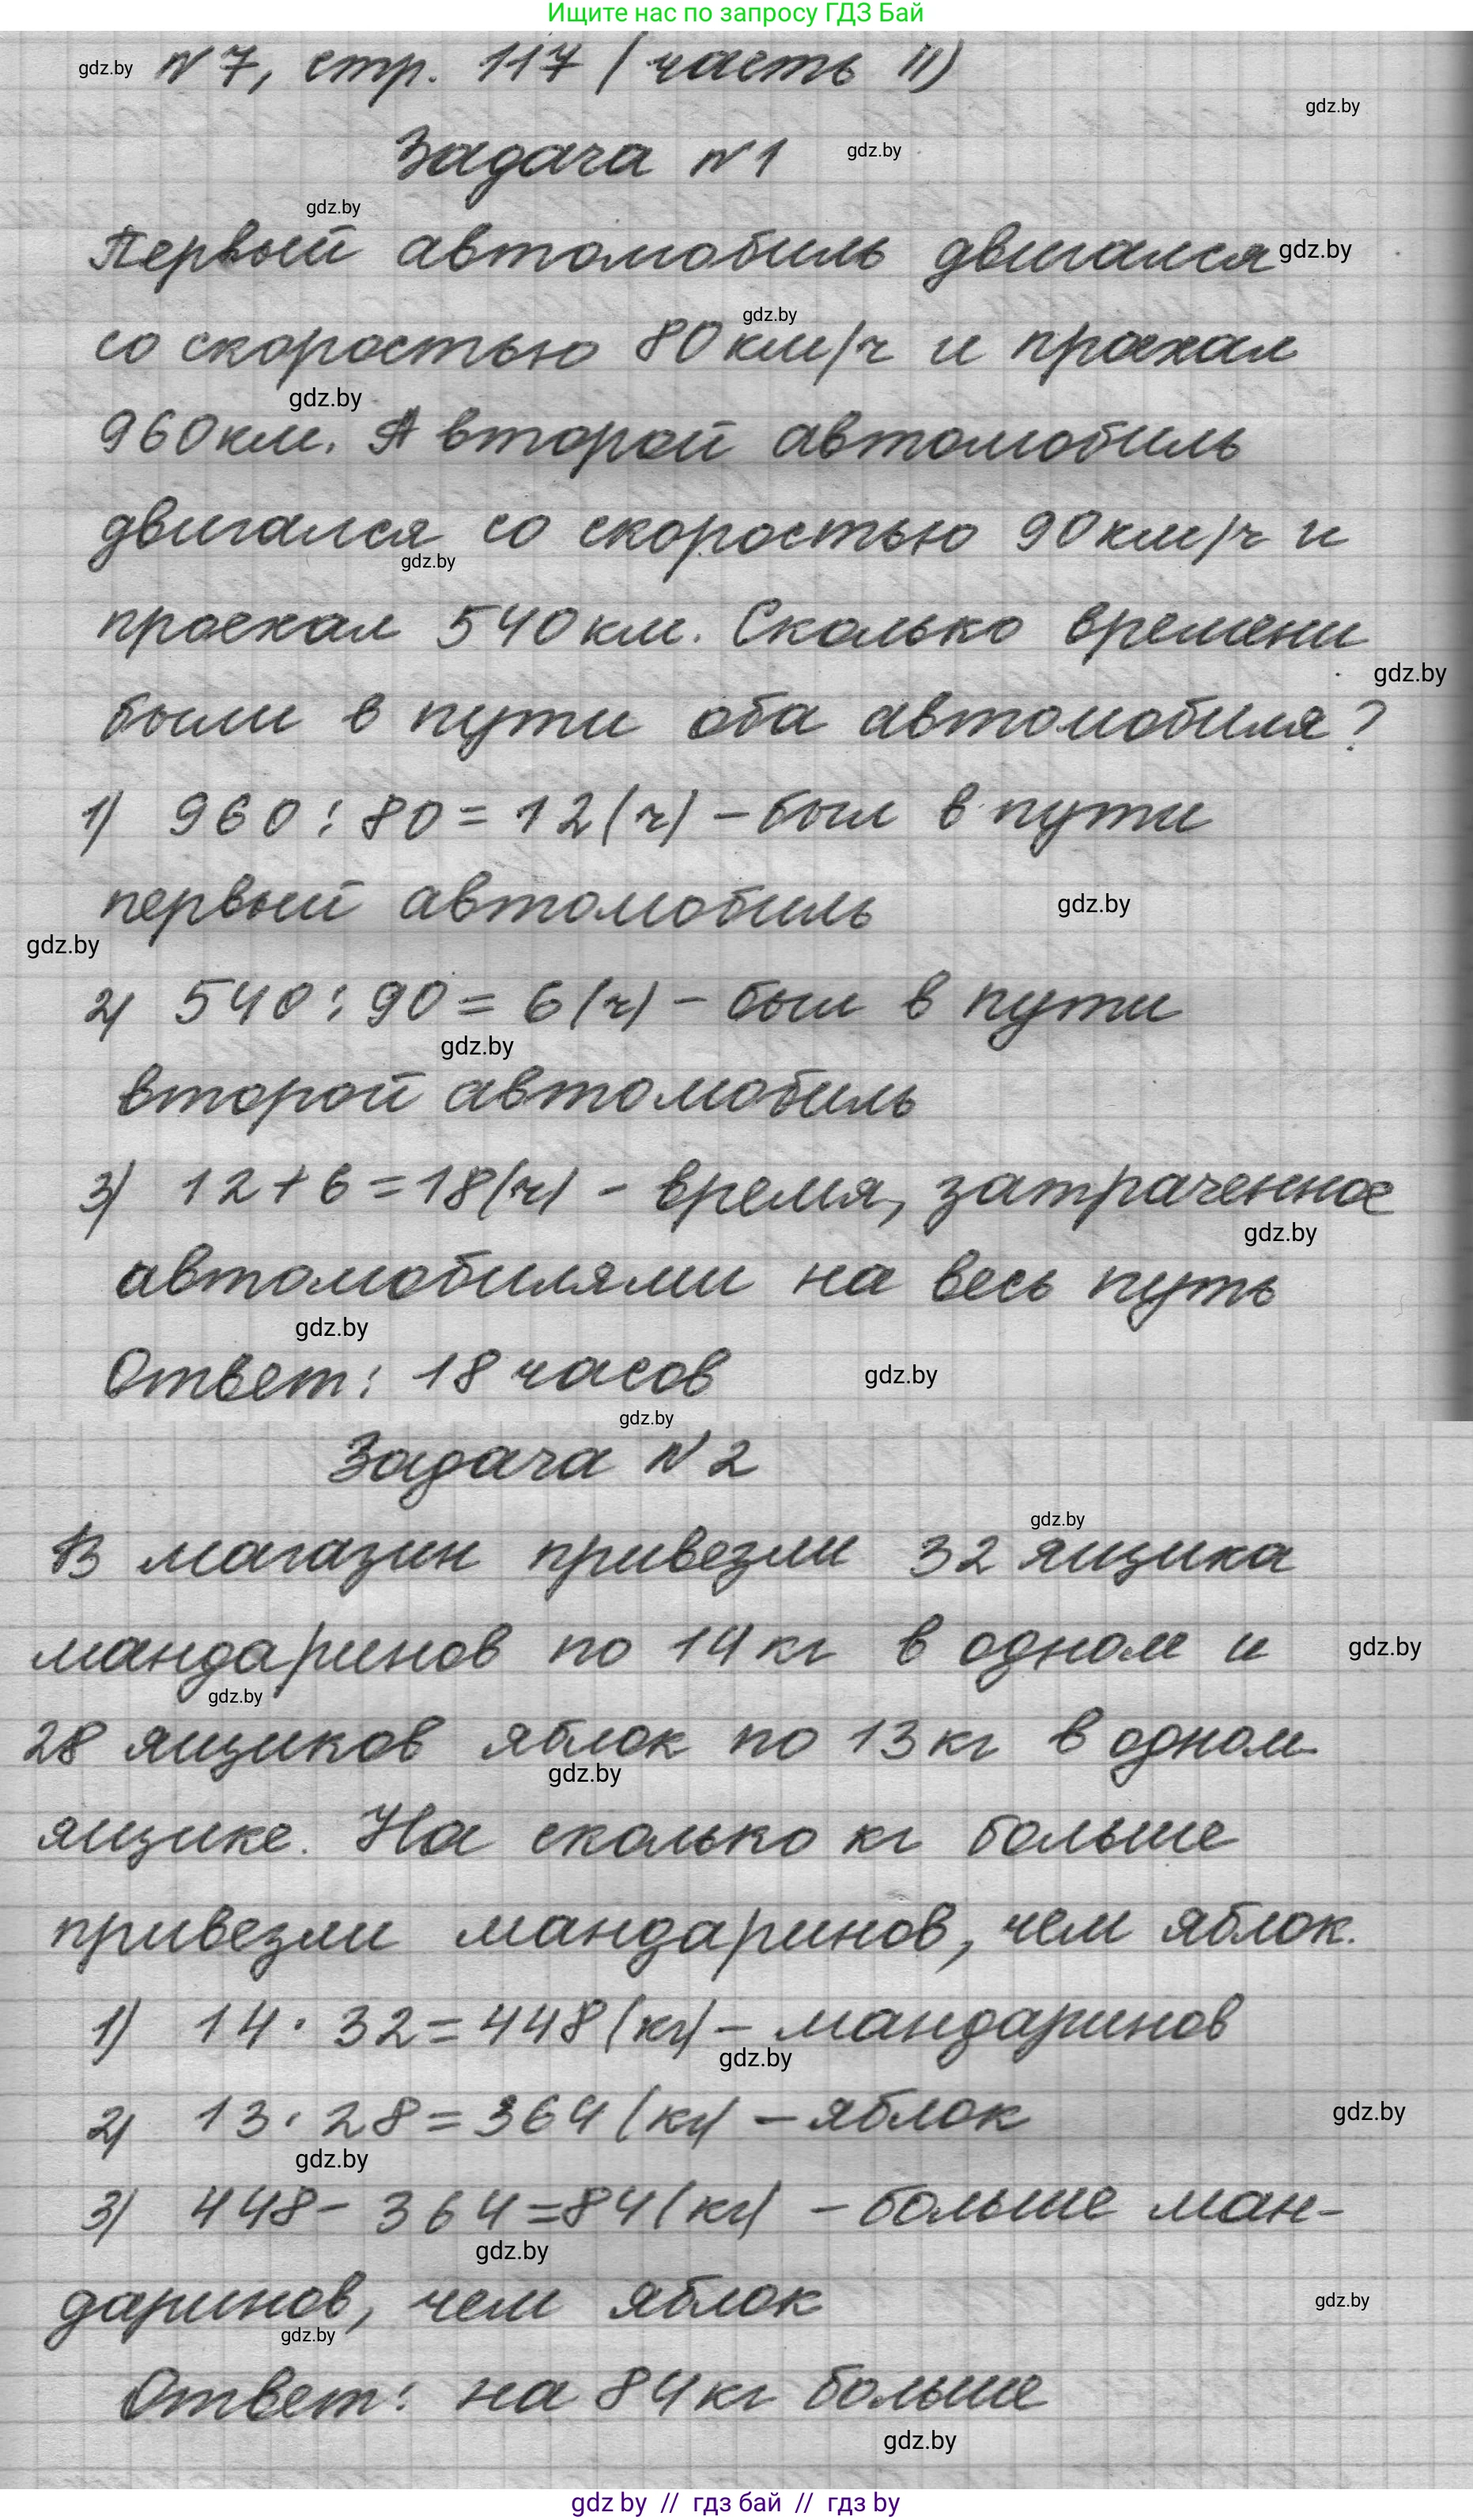 Ищите нас по запросу ГДЗ Бай
gdz.by №7, стр. 117 (часть II)
gdz.by
Задача №1 gdz.by
gdz.by
Первый автомобиль двигался gdz.by
gdz.by
со скоростью 80 км/ч и проехал
gdz.by
960 км. А второй автомобиль
двигался со скоростью 90 км/ч и
gdz.by
проехал 540 км. Сколько времени
gdz.by
были в пути оба автомобиля?
1) 960 : 80 = 12 (ч) – был в пути
первый автомобиль gdz.by
gdz.by
2) 540 : 90 = 6 (ч) – был в пути
gdz.by
второй автомобиль
3) 12 + 6 = 18 (ч) – время, затраченное
gdz.by
автомобилями на весь путь
gdz.by
Ответ: 18 часов gdz.by
gdz.by
Задача №2
gdz.by
В магазин привезли 32 ящика
мандаринов по 14 кг в одном и gdz.by
gdz.by
28 ящиков яблок по 13 кг в одном
gdz.by
ящике. На сколько кг больше
привезли мандаринов, чем яблок.
1) 14 · 32 = 448 (кг) – мандаринов
gdz.by
2) 13 · 28 = 364 (кг) – яблок gdz.by
gdz.by
3) 448 – 364 = 84 (кг) – больше ман-
gdz.by
даринов, чем яблок gdz.by
gdz.by
Ответ: на 84 кг больше
gdz.by
gdz by // гдз бай // гдз by